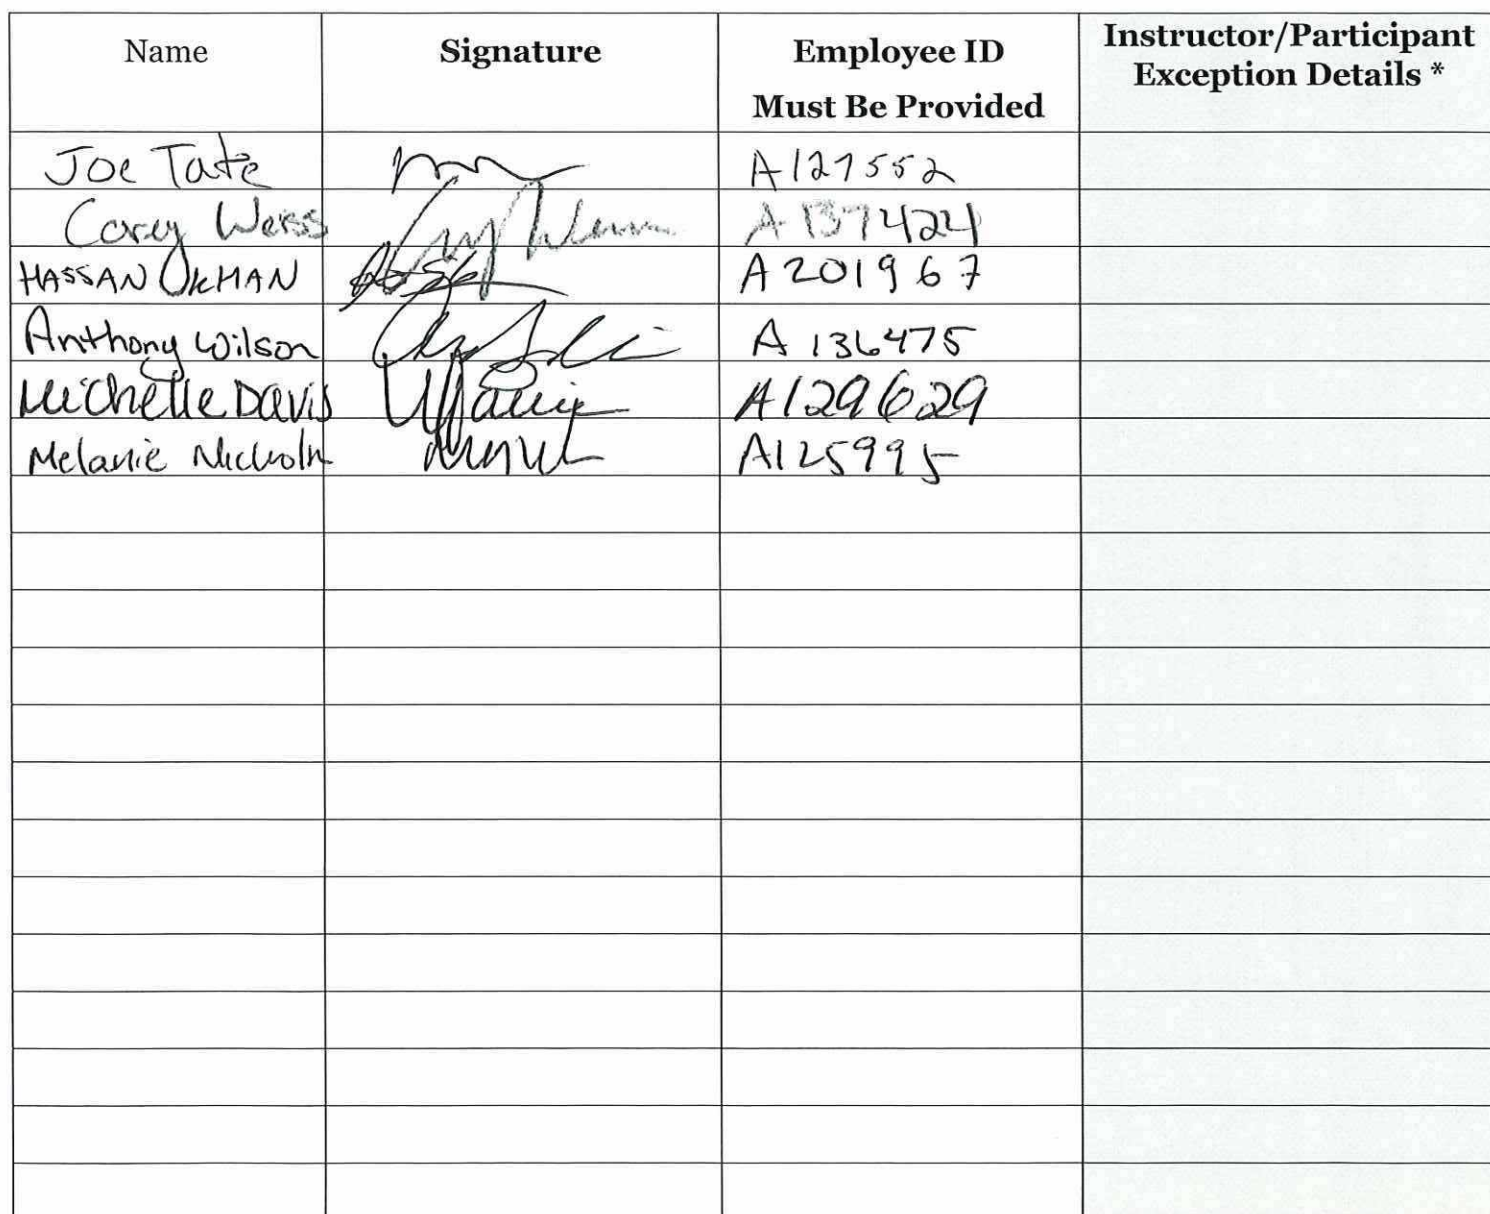 Name Signature Employee ID Instructor/Participant
Must Be Provided Exception Details *
Joe Tate A127552
Corey Weiss A137424
HASSAN OKHAN A201967
Anthony Wilson A136475
Michelle Davis A129629
Melanie A125995